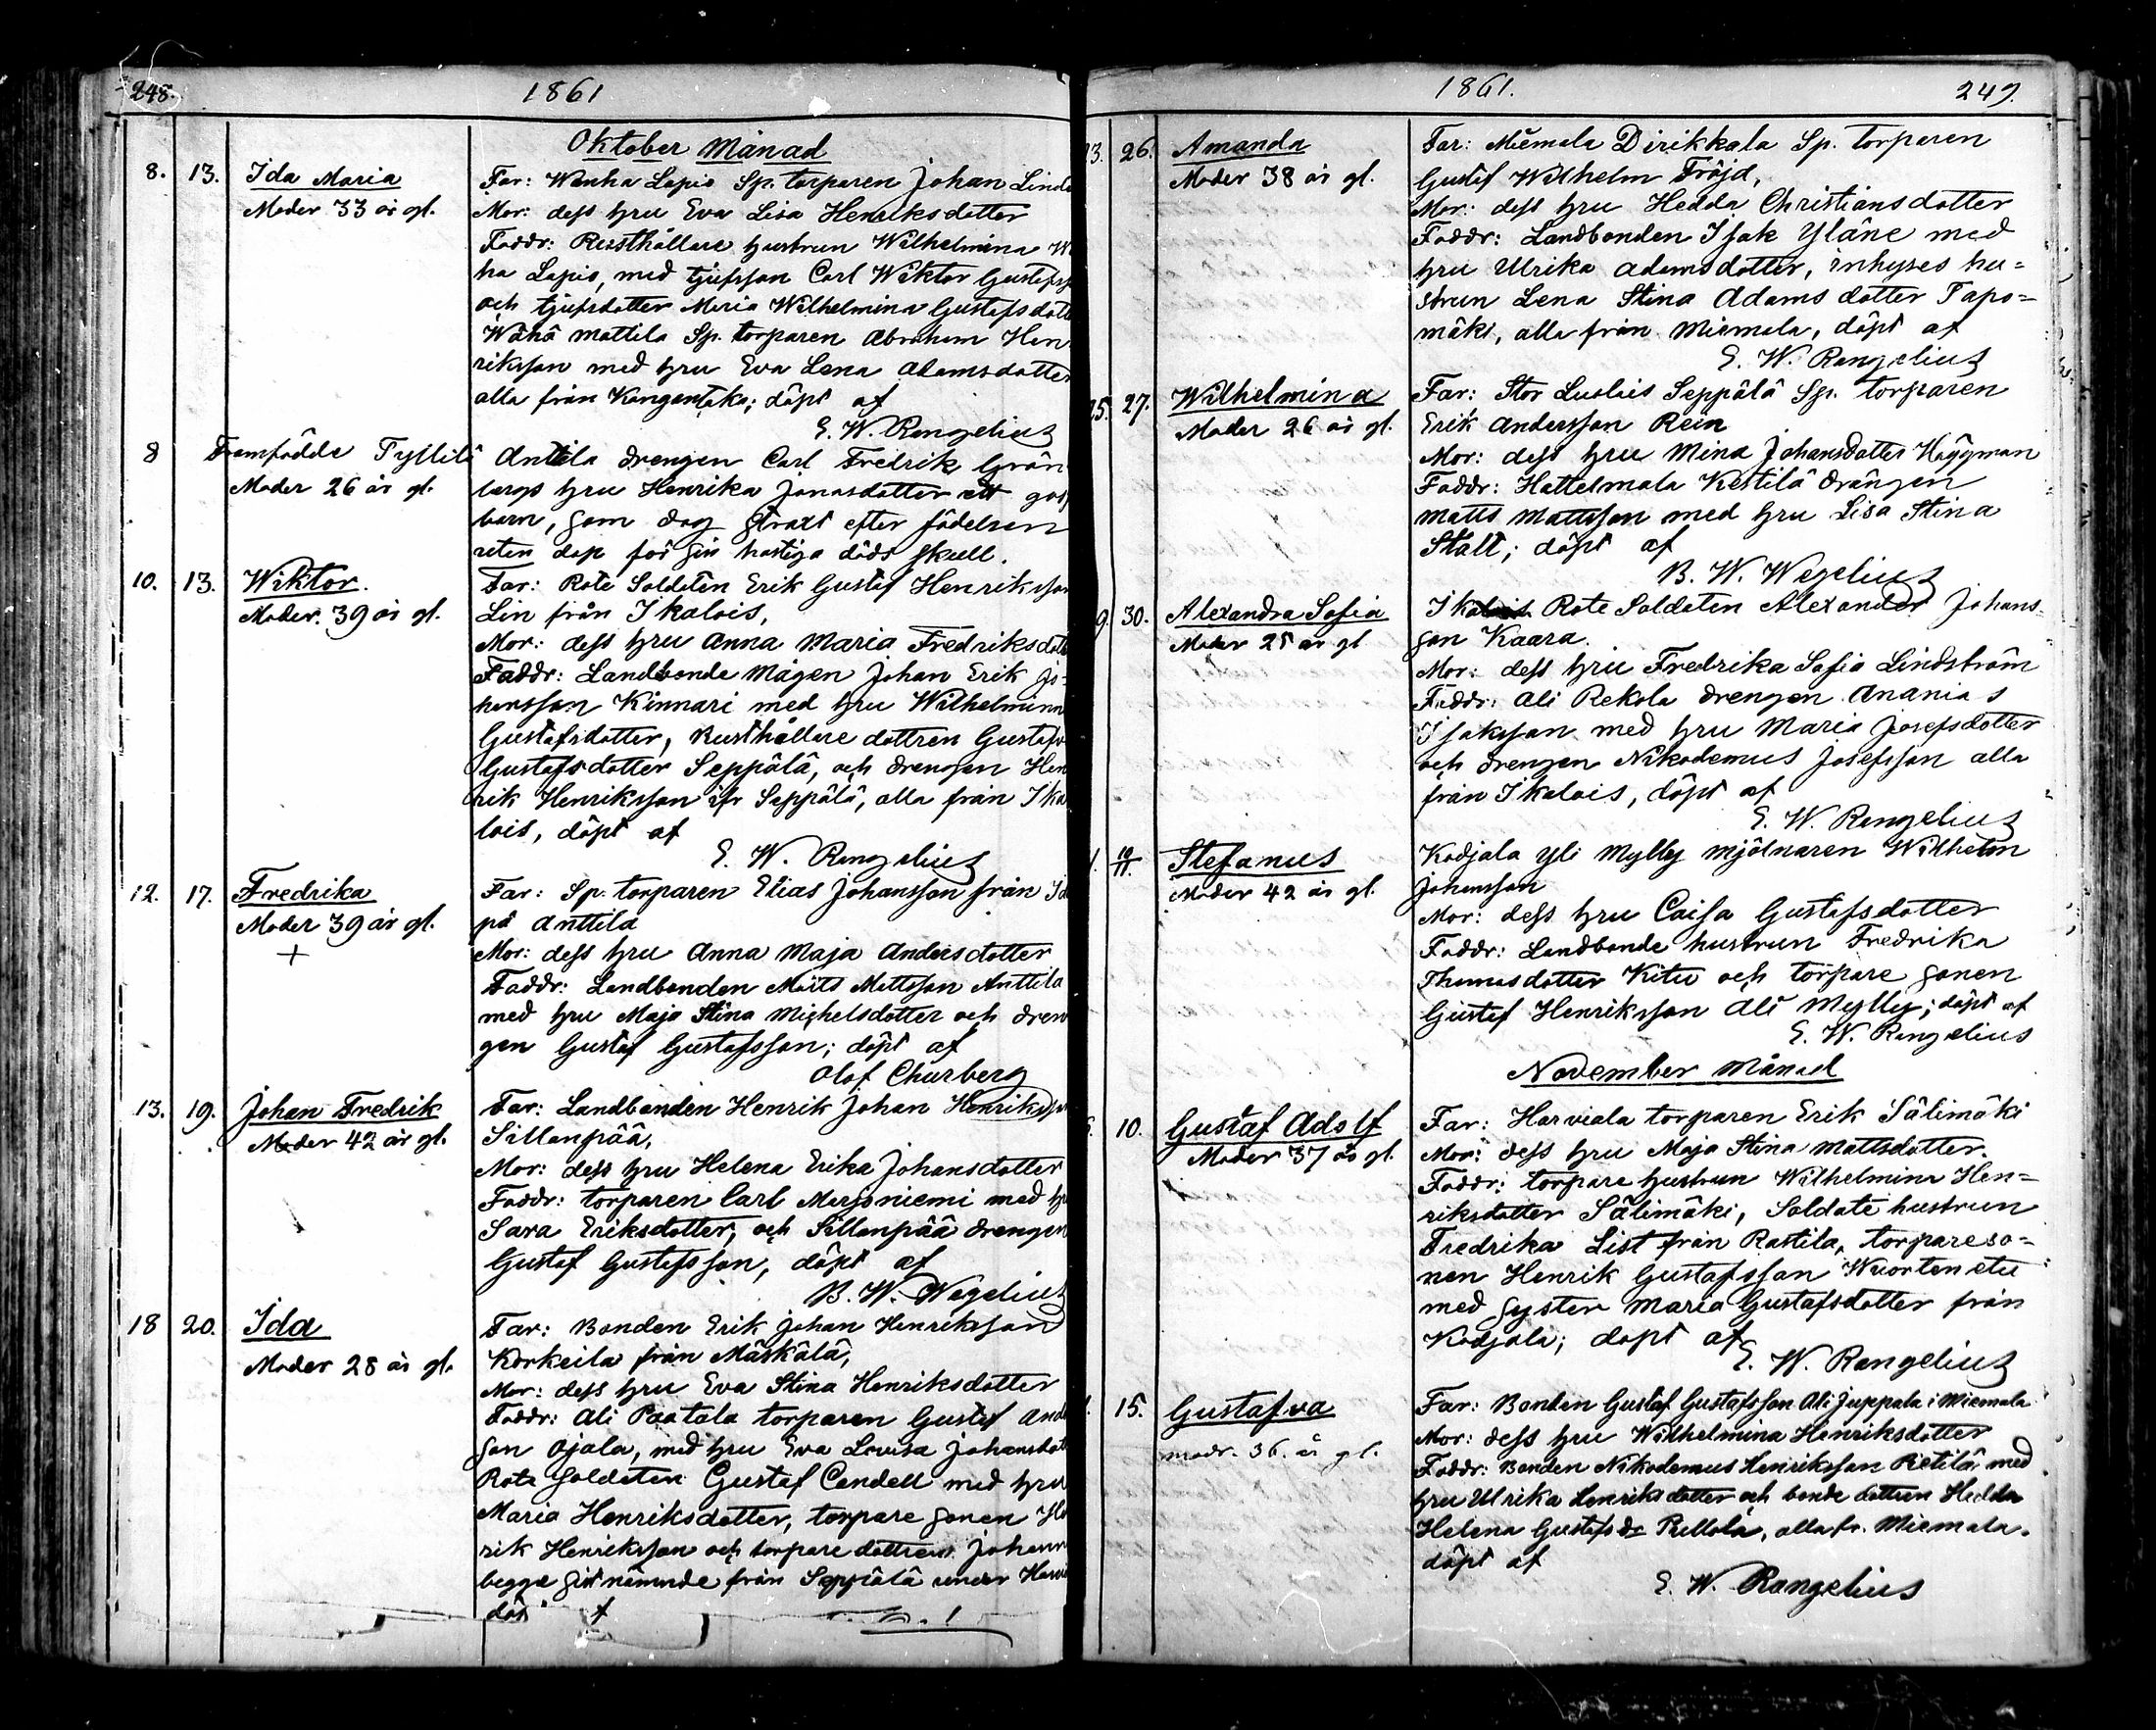 248.
1861
Oktober Månad
8. 13. Ida Maria
Moder 33 år gl.
Far: Wanha Lapio Sp. torparen Johan Lind
Mor: dess hru Eva Lisa Henriksdotter
Faddr: Rusthållare hustrun Wilhelmina W
ha Lapio, med tjufsson Carl Wiktor Gustafss
och tjufsdotter Maria Wilhelmina Gustafsdott
Wähä Mattila Sp. torparen Abraham Hen
riksson med hru Eva Lena Adamsdotter
alla från Kangentaka; döpt af
E. W. Rangelius
8 Framfödde Tyllilä Anttila drengen Carl Fredrik Grön
Moder 26 år gl.
bergs hru Henrika Jonasdotter ett goss
barn, som dog straxt efter födelsen
utan dop för sin hastiga döds skull.
10. 13. Wiktor.
Moder. 39 år gl.
Far: Rote Soldaten Erik Gustaf Henriksson
Lin från Ikalois,
Mor: dess hru Anna Maria Fredriksdott
Faddr: Landbonde Mågen Johan Erik Jo-
hansson Kinnari med hru Wilhelmina
Gustafsdotter, Rusthållare dottren Gustafv
Gustafsdotter Seppälä, och drengen Hen
rik Henriksson ifr Seppälä, alla från Ika
lois, döpt af
E. W. Rangelius
12. 17. Fredrika
Moder 39 år gl.
+
Far: Sp. torparen Elias Johansson från Id
pä Anttila
Mor: dess hru Anna Maja Andersdotter
Faddr: Landbonden Matts Mattsson Anttila
med hru Maja Stina Michelsdotter och dren
gen Gustaf Gustafsson; döpt af
Olof Churberg
13. 19. Johan Fredrik
Moder 42 år gl.
Far: Landbonden Henrik Johan Henriksson
Sillanpää,
Mor: dess hru Helena Erika Johansdotter
Faddr: torparen Carl Marjoniemi med hr
Sara Eriksdotter, och Sillanpää drengen
Gustaf Gustafsson, döpt af
B. W. Wegelius
18 20. Ida
Moder 28 år gl.
Far: Bonden Erik Johan Henriksson
Korkeila från Mäskälä,
Mor: dess hru Eva Stina Henriksdotter
Faddr: Ali Paatala torparen Gustaf And
son Ojala, med hru Eva Lovisa Johansdott
Rote Soldaten Gustaf Candell med hru
Maria Henriksdotter, torpare sonen Hen
rik Henriksson och torpare dottren Johann
begge sistnämnde från Seppälä under Harvi
döp f
1861.
249.
23. 26. Amanda
Moder 38 år gl.
Far: Miemala Dirikkala Sp. torparen
Gustaf Wilhelm Fröjd,
Mor: dess hru Hedda Christiansdotter
Faddr: Landbonden Isak Yläne med
hru Ulrika Adamsdotter, inhyses hu-
strun Lena Stina Adamsdotter Tapo-
mäki, alla från Miemala, döpt af
E. W. Rangelius
25. 27. Wilhelmina
Moder 26 år gl.
Far: Stor Luolais Seppälä Sp. torparen
Erik Andersson Rein
Mor: dess hru Mina Johansdotter Häggman
Faddr: Hattelmala Kestilä drängen
Matts Mattsson med hru Lisa Stina
Stält; döpt af
B. W. Wegelius
9. 30. Alexandra Sofia
Moder 25 år gl
Ikalois Rote Soldaten Alexander Johans-
son Kaara.
Mor: dess hru Fredrika Sofia Lindström
Faddr: Ali Rekola drengen Ananias
Isaksson med hru Maria Josefsdotter
och drengen Nikodemus Josefsson alla
från Ikalois, döpt af
E. W. Rangelius
1. 10/11. Stefanus
Moder 42 år gl.
Kodjala Yli Mylly mjölnaren Wilhelm
Johansson
Mor: dess hru Caisa Gustafsdotter
Faddr: Landbonde hustrun Fredrika
Thomasdotter Kitu och torpare sonen
Gustaf Henriksson Ali Mylly; döpt af
E. W. Rangelius
November Månad
10. Gustaf Adolf
Moder 37 år gl.
Far: Harviala torparen Erik Sälimäki
Mor: dess hru Maja Stina Mattsdotter.
Faddr: torpare hustrun Wilhelmina Hen-
riksdotter Sälimäki, Soldate hustrun
Fredrika List från Rastila, torpareso-
nen Henrik Gustafsson Wuortenetu
med syster Maria Gustafsdotter från
Kodjala; döpt af
E. W. Rangelius
15. Gustafva
modr. 36. år gl.
Far: Bonden Gustaf Gustafsson Ali Juppala i Miemala
Mor: dess hru Wilhelmina Henriksdotter
Faddr: Bonden Nikodemus Henriksson Pietilä med
hru Ulrika Henriksdotter och bonde dottren Hedda
Helena Gustafsdr Pullola, alla fr. Miemala.
döpt af
E. W. Rangelius